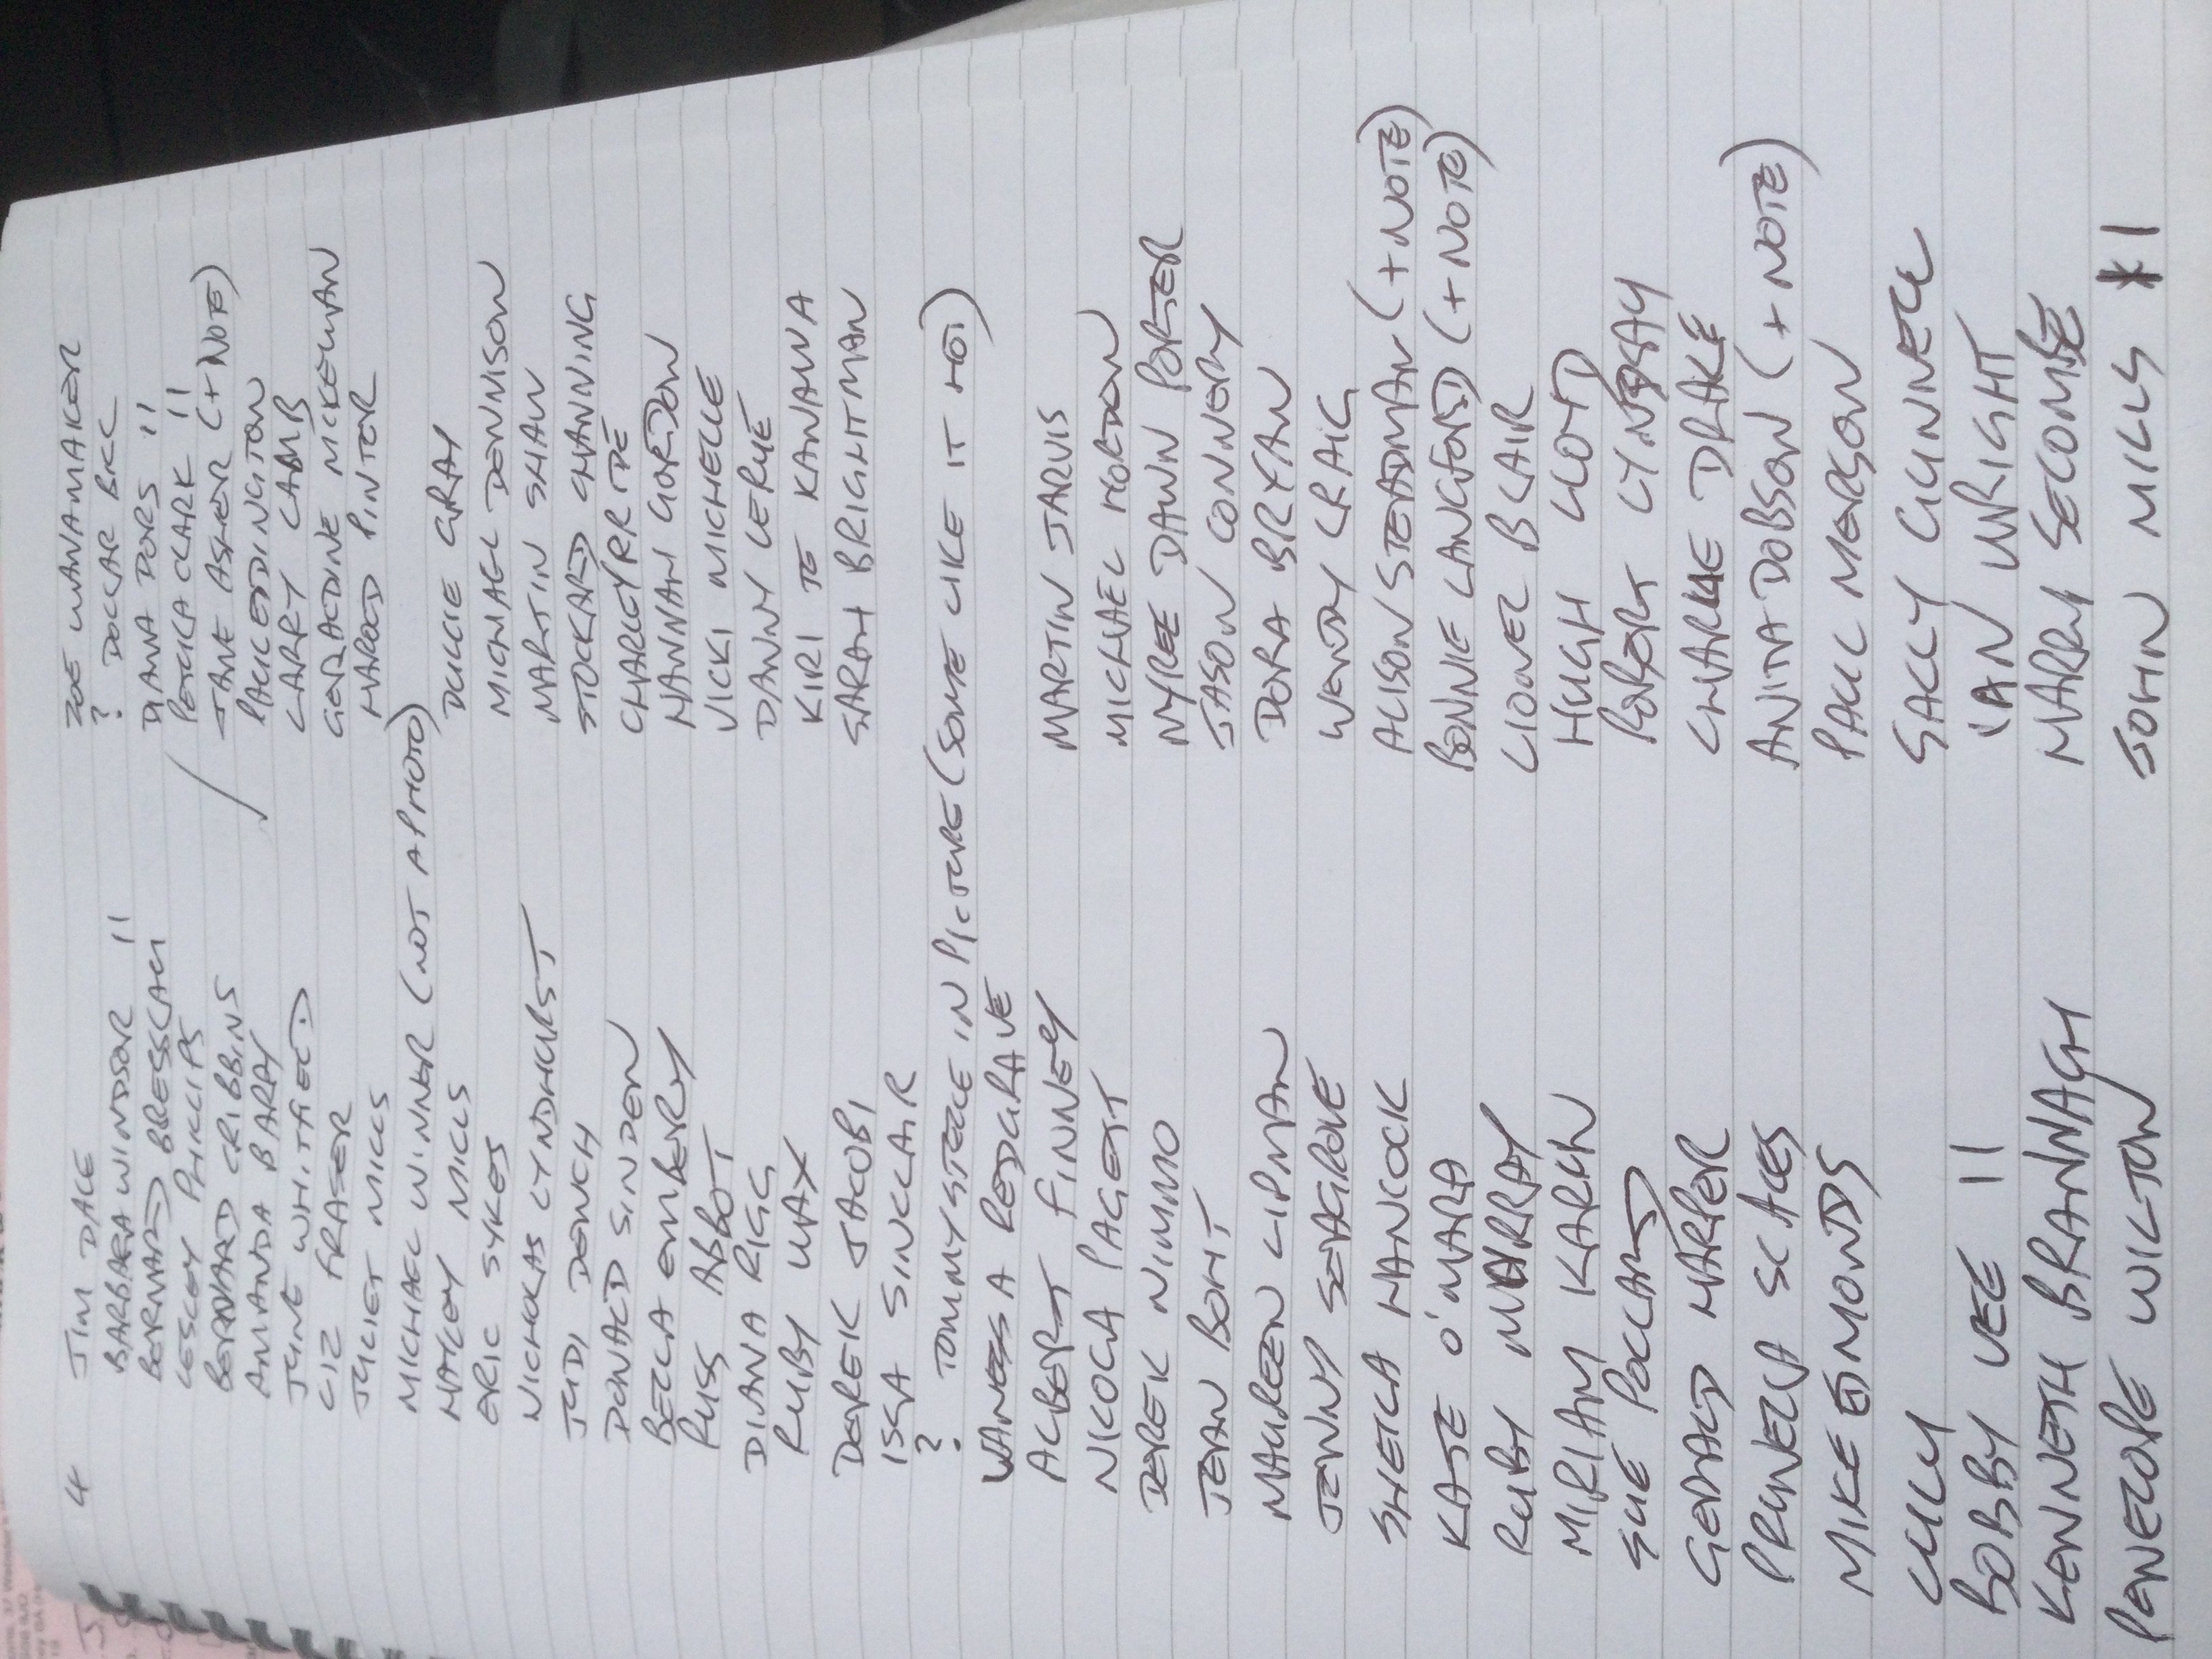 4
JIM DALE
BARBARA WINDSOR 11
BERNARD BRESSLAW
LESLEY PHILLIPS
BERNARD CRIBBINS
AMANDA BARRY
JUNE WHITFIELD
LIZ FRASER
JULIET MILLS
MICHAEL WINNER (NOT A PHOTO)
HAYLEY MILLS
ERIC SYKES
NICHOLAS LYNDHURST
JUDI DENCH
DONALD SINDEN
BELLA EMBERY
RUSS ABBOT
DIANA RIGG
RUBY WAX
DEREK JACOBI
ISSA SINCLAIR
? TOMMY STEELE IN PICTURE (SOME LIKE IT HOT)
VANESSA REDGRAVE
ALBERT FINNEY
NICOLA PAGETT
DEREK NIMMO
JEAN BOHT
MAUREEN LIPMAN
JENNY SEAGROVE
SHEILA HANCOCK
KATE O'MARA
RUBY MURRAY
MIRIAM KARLIN
SUE POLLARD
GERALD HARPER
PRUNELLA SCALES
MIKE EDMONDS
LULU
BOBBY VEE 11
KENNETH BRANNAGH
PENELOPE WILTON
ZOE WANAMAKER
? DOLLAR BILL
DIANA DORS 11
PETULA CLARK 11
JANE ASHER (+NOTE)
PAUL EDDINGTON
LARRY LAMB
GERALDINE MCKEWAN
HAROLD PINTER
DULCIE GRAY
MICHAEL DENNISON
MARTIN SHAW
STOCKARD CHANNING
CHARLEY RITE
HANNAH GORDON
VICKI MICHELLE
DANNY LERUE
KIRI TE KANAWA
SARAH BRIGHTMAN
MARTIN JARVIS
MICHAEL HORDON
NYREE DAWN PORTER
JASON CONNERY
DORA BRYAN
WENDY CRAIG
ALISON STEADMAN (+NOTE)
BONNIE LANGFORD (+NOTE)
LIONEL BLAIR
HUGH LLOYD
ROBERT LYNDSAY
CHARLIE DRAKE
ANITA DOBSON (+NOTE)
PAUL MERSON
SALLY GUNNELL
IAN WRIGHT
HARRY SECOMBE
JOHN MILLS *1